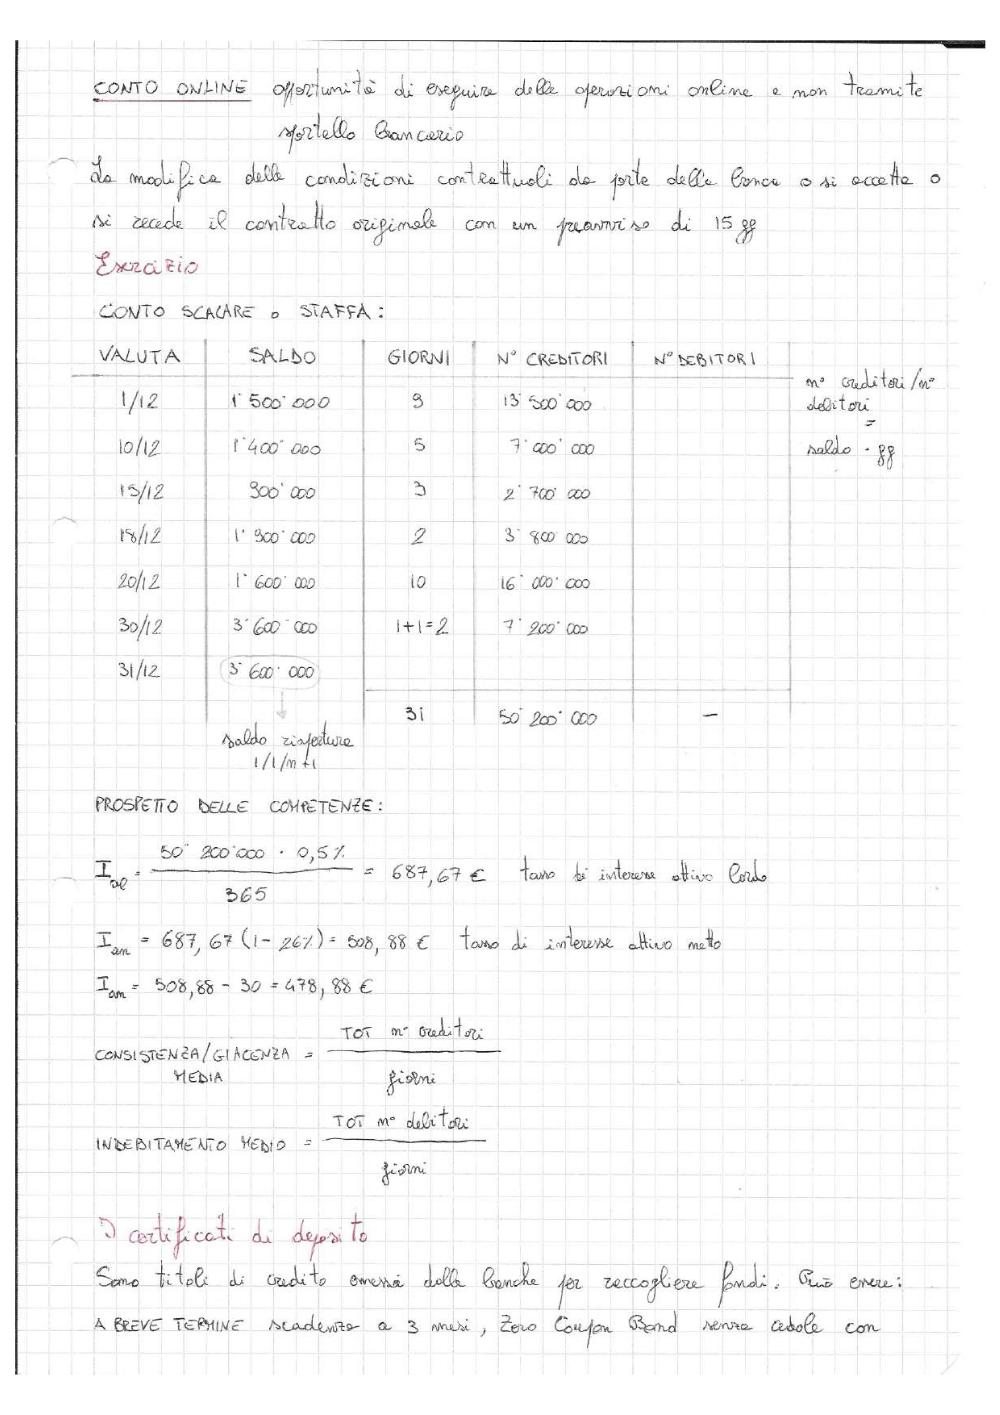 CONTO ONLINE opportunità di eseguire delle operazioni online e non tramite
sportello bancario
La modifica delle condizioni contrattuali da parte della banca o si accetta o
si recede il contratto originale con un preavviso di 15 gg
Esercizio
CONTO SCALARE o STAFFA:
VALUTA SALDO GIORNI N° CREDITORI N° DEBITORI
1/12 1'500'000 9 13'500'000
10/12 1'400'000 5 7'000'000
15/12 900'000 3 2'700'000
18/12 1'900'000 2 3'800'000
20/12 1'600'000 10 16'000'000
30/12 3'600'000 1+1=2 7'200'000
31/12 3'600'000
31 50'200'000 -
n° creditori/n°
debitori
=
saldo · gg
saldo riapertura
1/1/n+1
PROSPETTO DELLE COMPETENZE:
Ial = 50'200'000 · 0,5% / 365 = 687,67 € tasso di interesse attivo lordo
Ian = 687,67 (1-26%) = 508,88 € tasso di interesse attivo netto
Ian = 508,88 - 30 = 478,88 €
CONSISTENZA/GIACENZA MEDIA = TOT n° creditori / giorni
INDEBITAMENTO MEDIO = TOT n° debitori / giorni
I certificati di deposito
Sono titoli di credito emessi dalle banche per raccogliere fondi. Può essere:
A BREVE TERMINE scadenza a 3 mesi, Zero Coupon Bond senza cedole con